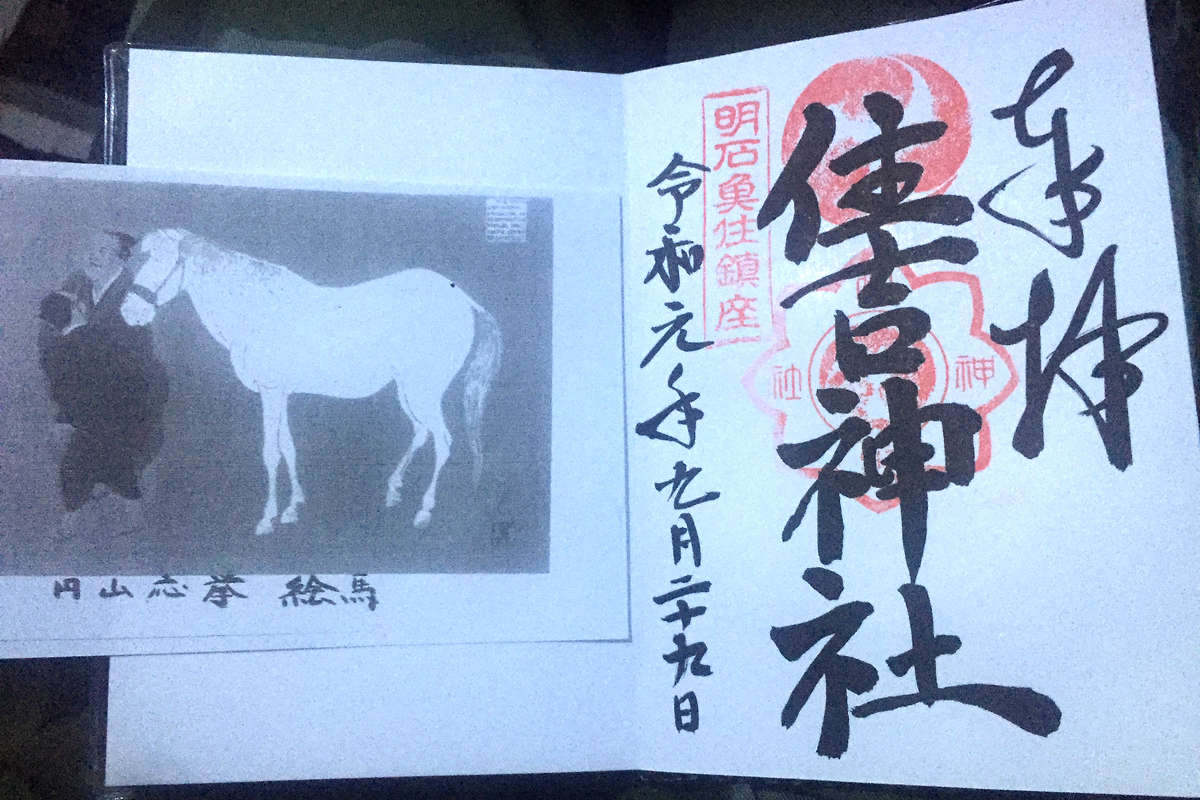 奉拝
住吉神社
明石魚住鎮座
神
社
令和元年九月二十九日
円山応挙 絵馬